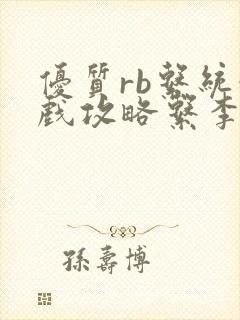 優質rb繫統
戲攻略繫李
孫壽博